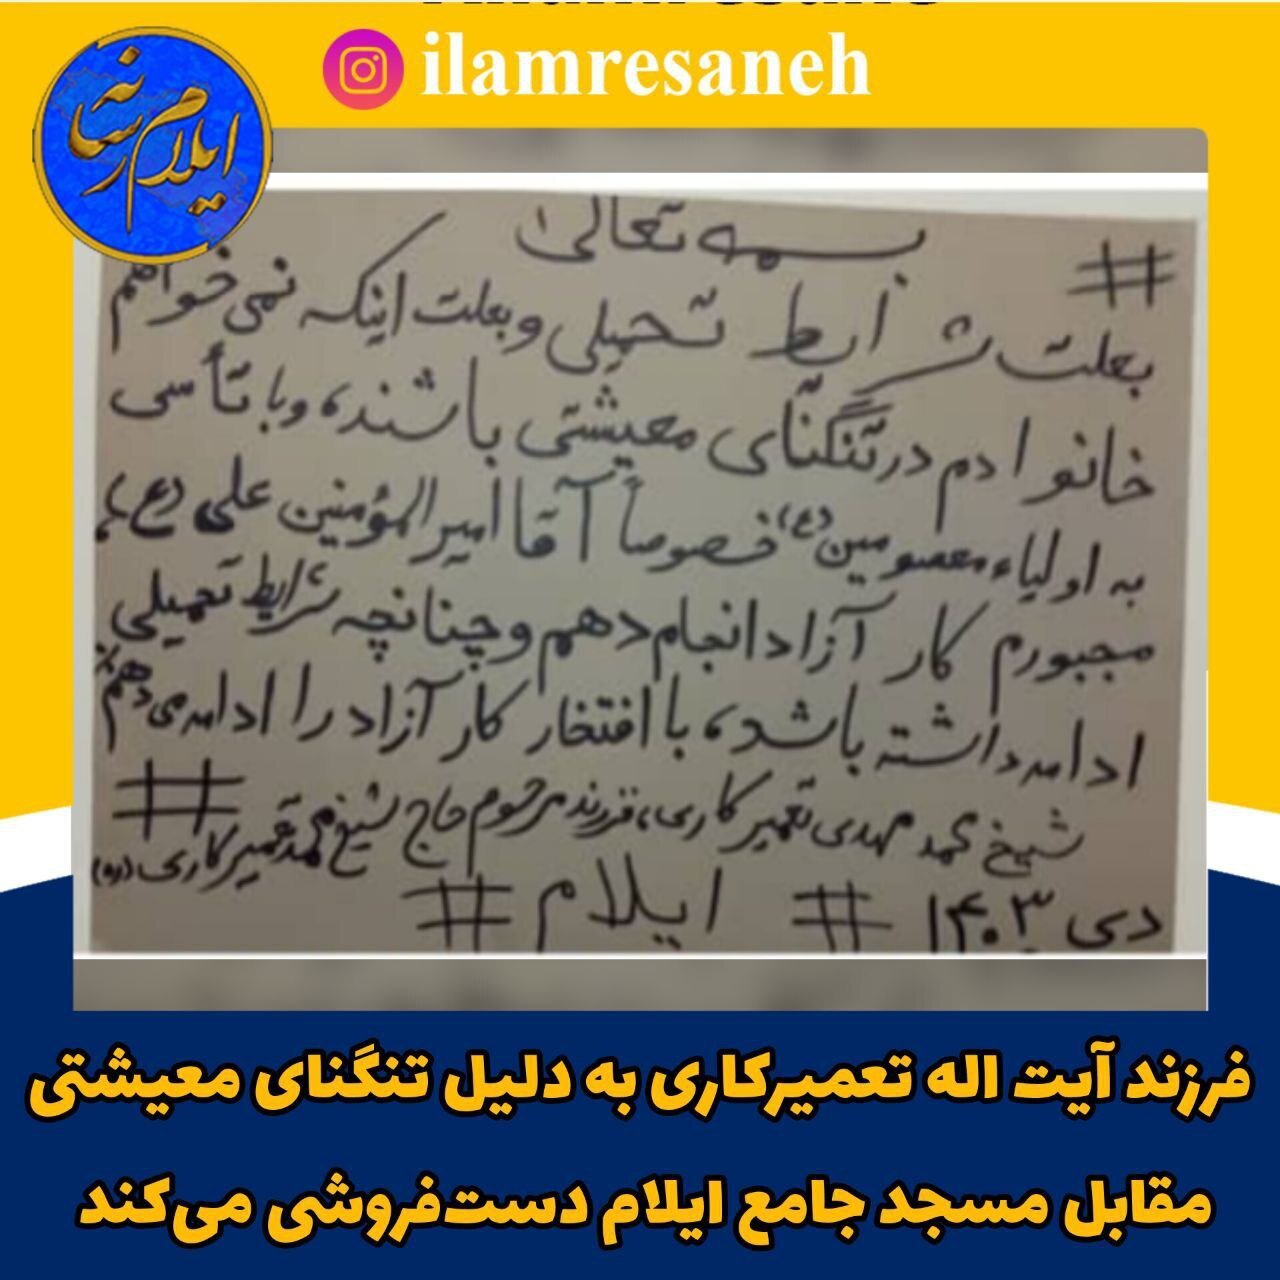 ilamresaneh
ایلام رسانه
بسمه تعالی
# بعلت شرایط تحمیلی و بعلت اینکه نمی خواهم
خانوادم در تنگنای معیشتی باشند، و با تأسی
به اولیاء معصومین (ع) خصوصاً آقا امیرالمؤمنین علی (ع)،
مجبورم کار آزاد انجام دهم و چنانچه شرایط تحمیلی
ادامه داشته باشد، با افتخار کار آزاد را ادامه می دهم. #
شیخ محمد مهدی تعمیرکاری، فرزند مرحوم حاج شیخ محمد تعمیرکاری (ره)
دی ۱۴۰۳ # ایلام #
فرزند آیت اله تعمیرکاری به دلیل تنگنای معیشتی
مقابل مسجد جامع ایلام دست‌فروشی می‌کند